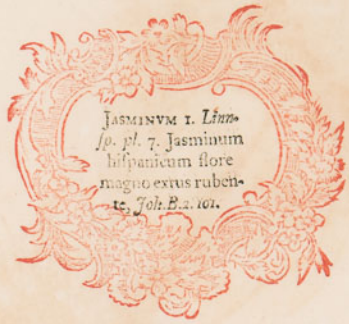 JASMINVM 1. Linn.
ſp. pl. 7. Jasminum
hiſpanicum flore
magno extus ruben-
te, Joh. B. 2. 101.